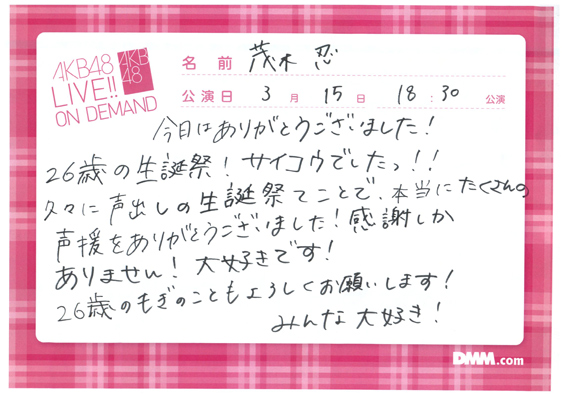 AKB48
LIVE!!
ON DEMAND
AKB
48
名 前 茂木 忍
公演日 3 月 15 日 18 : 30 公演
今日はありがとうございました!
26歳の生誕祭!サイコウでしたっ!!
久々に声出しの生誕祭てことで、本当にたくさんの
声援をありがとうございました!感謝しか
ありません!大好きです!
26歳のもぎのこともよろしくお願いします!
みんな大好き!
DMM.com